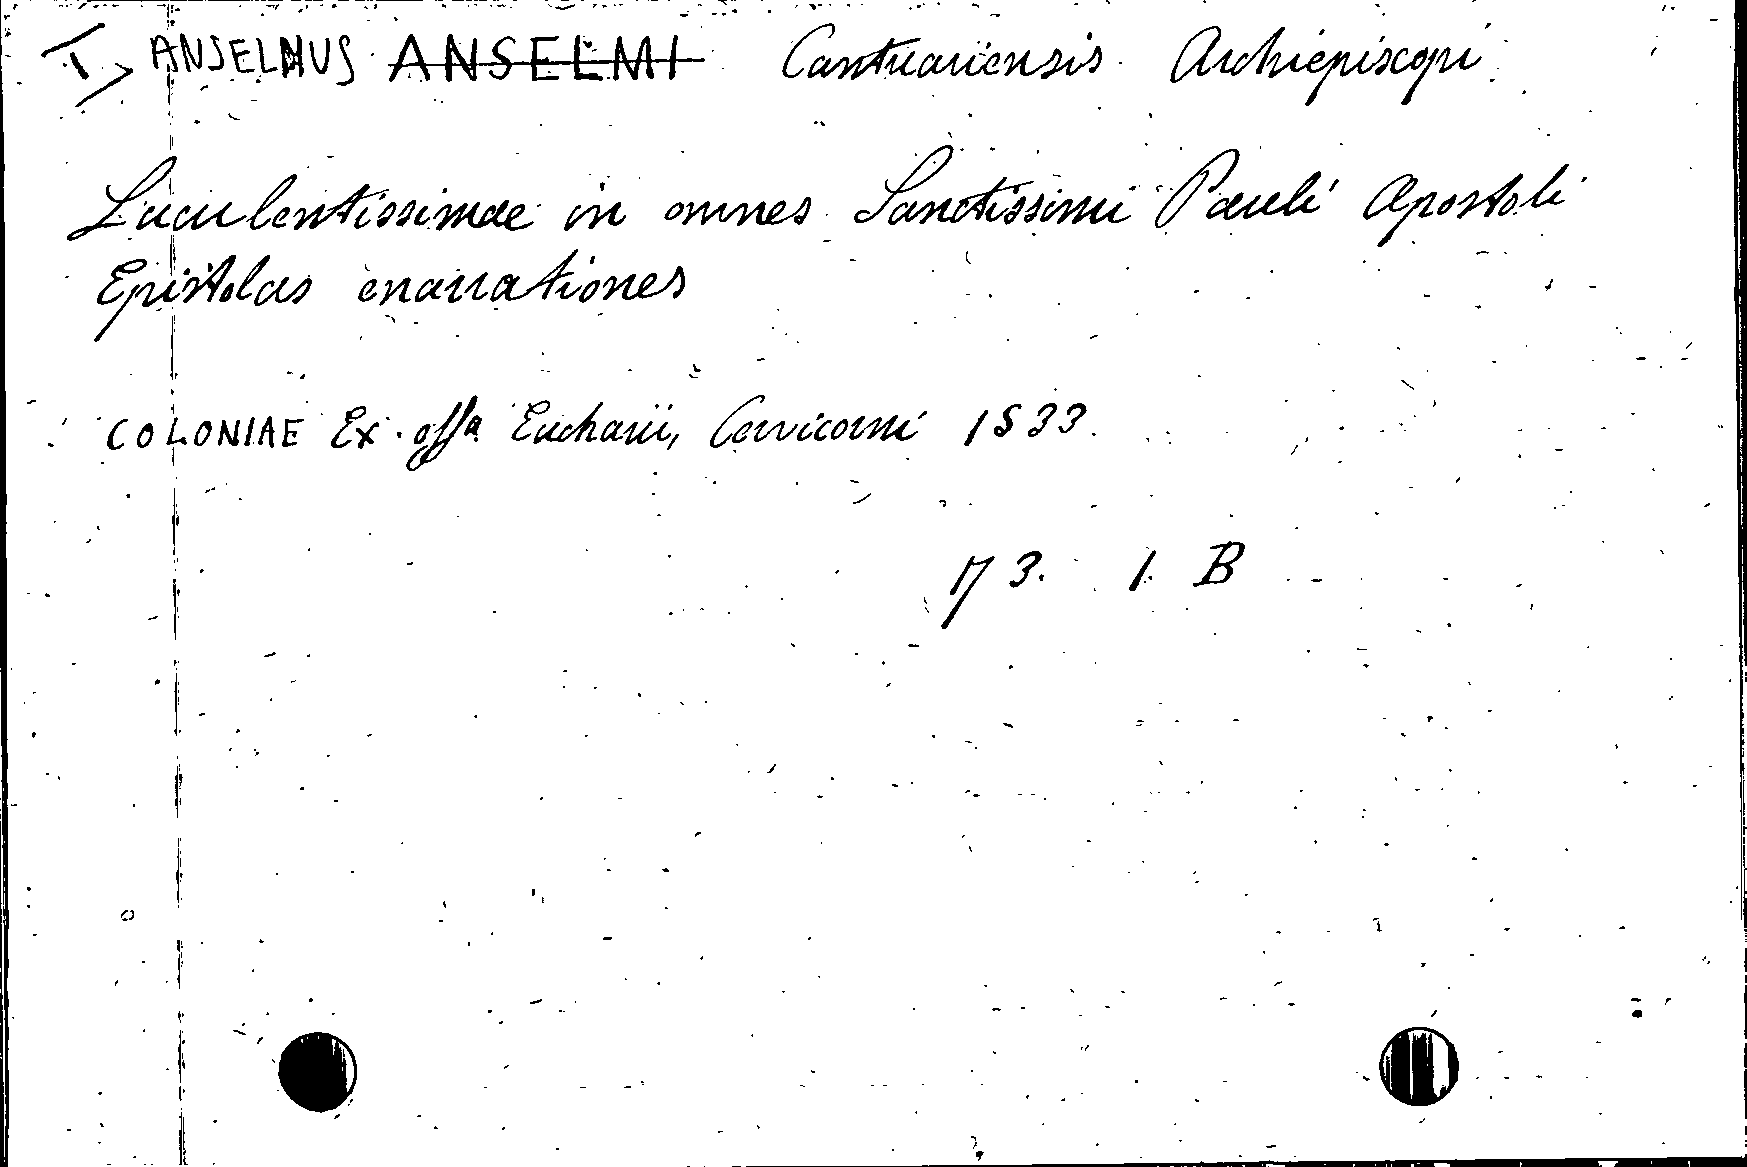 ANSELMUS ANSELMI Cantuariensis Archiepiscopi
Luculentissimae in omnes Sanctissimi Pauli Apostoli
Epistolas enarrationes
COLONIAE Ex. offa Eucharii, Cervicorni 1533.
173. 1. B